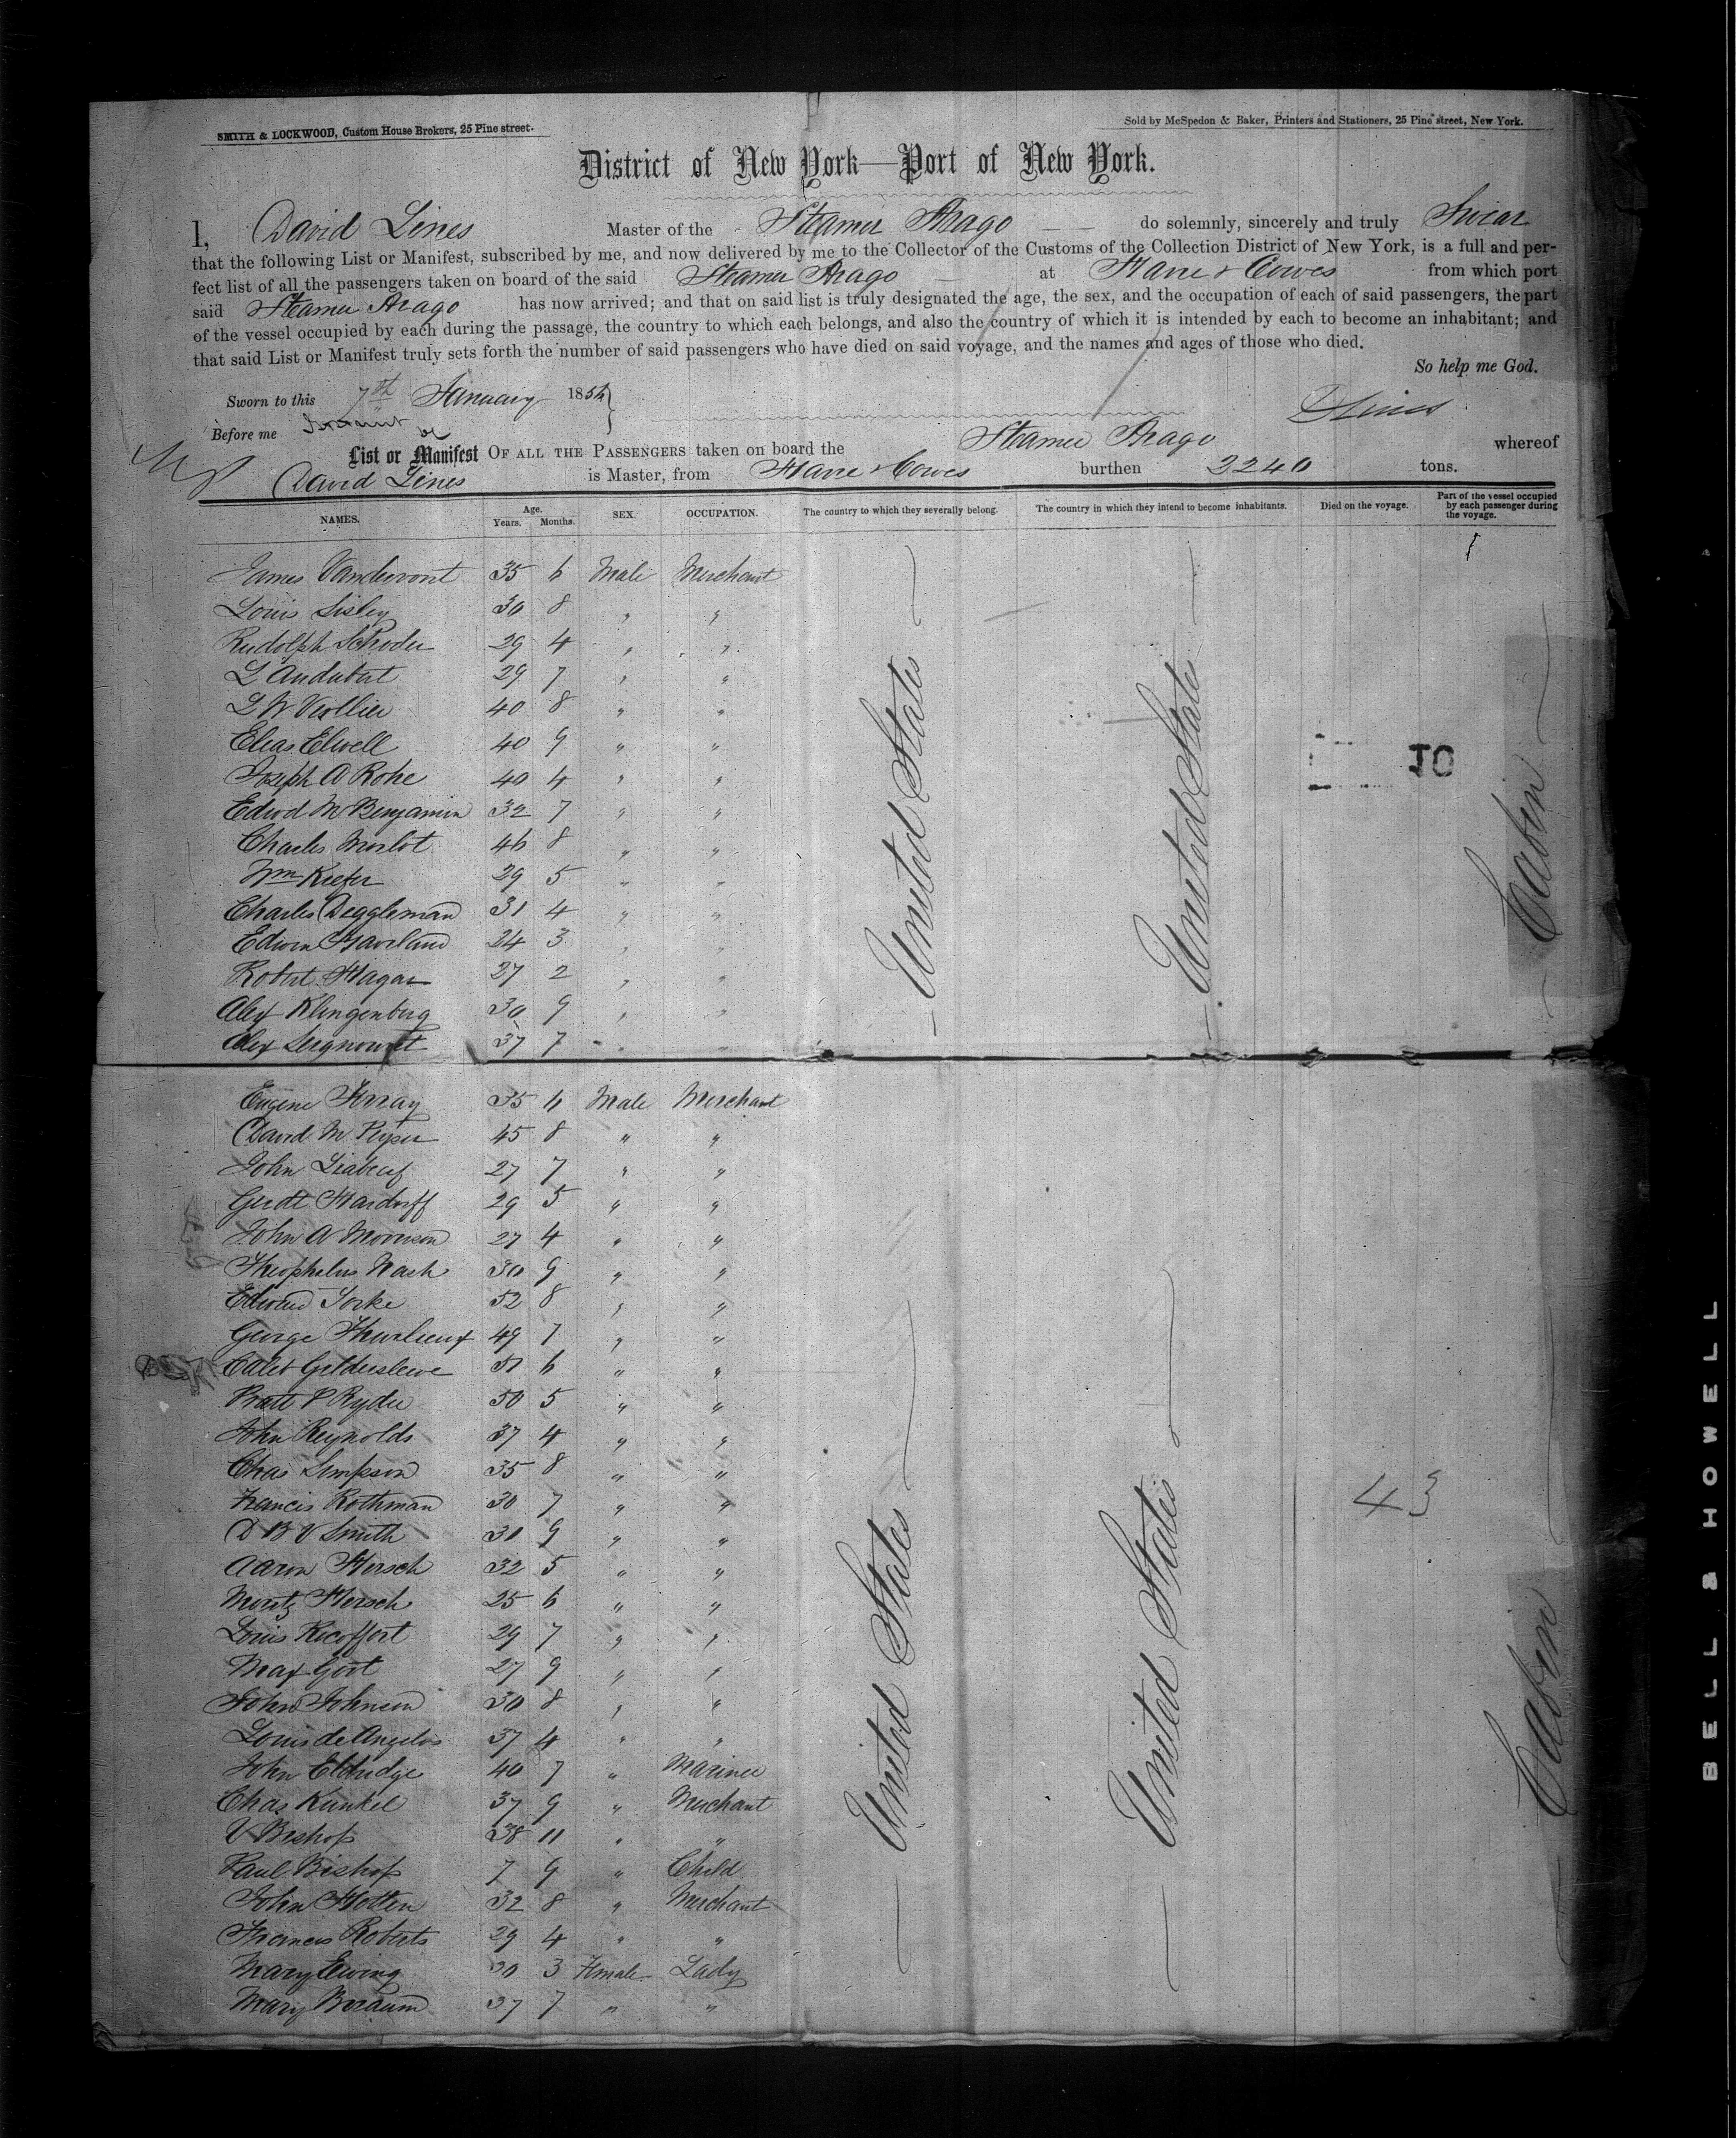 SMITH & LOCKWOOD, Custom House Brokers, 25 Pine street.
Sold by McSpedon & Baker, Printers and Stationers, 25 Pine street, New York.
District of New York—Port of New York.
I, David Lines Master of the Steamer Arago do solemnly, sincerely and truly Swear
that the following List or Manifest, subscribed by me, and now delivered by me to the Collector of the Customs of the Collection District of New York, is a full and per-
fect list of all the passengers taken on board of the said Steamer Arago at Havre & Cowes from which port
said Steamer Arago has now arrived; and that on said list is truly designated the age, the sex, and the occupation of each of said passengers, the part
of the vessel occupied by each during the passage, the country to which each belongs, and also the country of which it is intended by each to become an inhabitant; and
that said List or Manifest truly sets forth the number of said passengers who have died on said voyage, and the names and ages of those who died.
So help me God.
Sworn to this 7th January 185
D Lines
Before me
List or Manifest OF ALL THE PASSENGERS taken on board the Steamer Arago whereof
David Lines is Master, from Havre & Cowes burthen 2240 tons.
NAMES. Age. Years. Months. SEX. OCCUPATION. The country to which they severally belong. The country in which they intend to become inhabitants. Died on the voyage. Part of the vessel occupied by each passenger during the voyage.
James Vandervort 35 6 Male Merchant
Louis Sisley 30 8 " "
Rudolph Schroder 29 4 " "
L Audubert 29 7 " "
L W Viollier 40 8 " "
Elias Elwell 40 9 " "
Joseph A Rohe 40 4 " "
Edwd M Benjamin 32 7 " "
Charles Morlot 46 8 " "
Wm Kiefer 29 5 " "
Charles Deggleman 31 4 " "
Edwin Haviland 24 3 " "
Robert Hagan 27 2 " "
Alex Klingenberg 30 9 " "
Alex 37 7 " "
United States
United States
Cabin
TO
Eugene 35 6 Male Merchant
David M Peyser 45 8 " "
John Liabeuf 27 7 " "
Gerdt Hardorff 29 5 " "
John A Morrison 27 4 " "
Theophelus Nash 30 9 " "
Edward Yorke 52 8 " "
George 49 7 " "
Caleb Gildersleve 51 6 " "
Pratt P Ryder 50 5 " "
John Reynolds 37 4 " "
Chas Simpson 35 8 " "
Francis Rothman 30 7 " "
D B V Smith 31 9 " "
Aaron Hersch 32 5 " "
Moritz Hersch 25 6 " "
Louis Ricoffort 29 7 " "
Max Gort 27 9 " "
John Johnson 30 8 " "
Louis de Angelis 37 4 " "
John Eldridge 40 7 " Mariner
Chas Kunkel 37 9 " Merchant
V Bishop 38 11 " "
Paul Bishop 7 9 " Child
John Hotten 32 8 " Merchant
Francis Roberts 29 4 " "
Mary Ewing 30 3 Female Lady
Mary 37 7 " "
United States
United States
43
Cabin
BELL & HOWELL